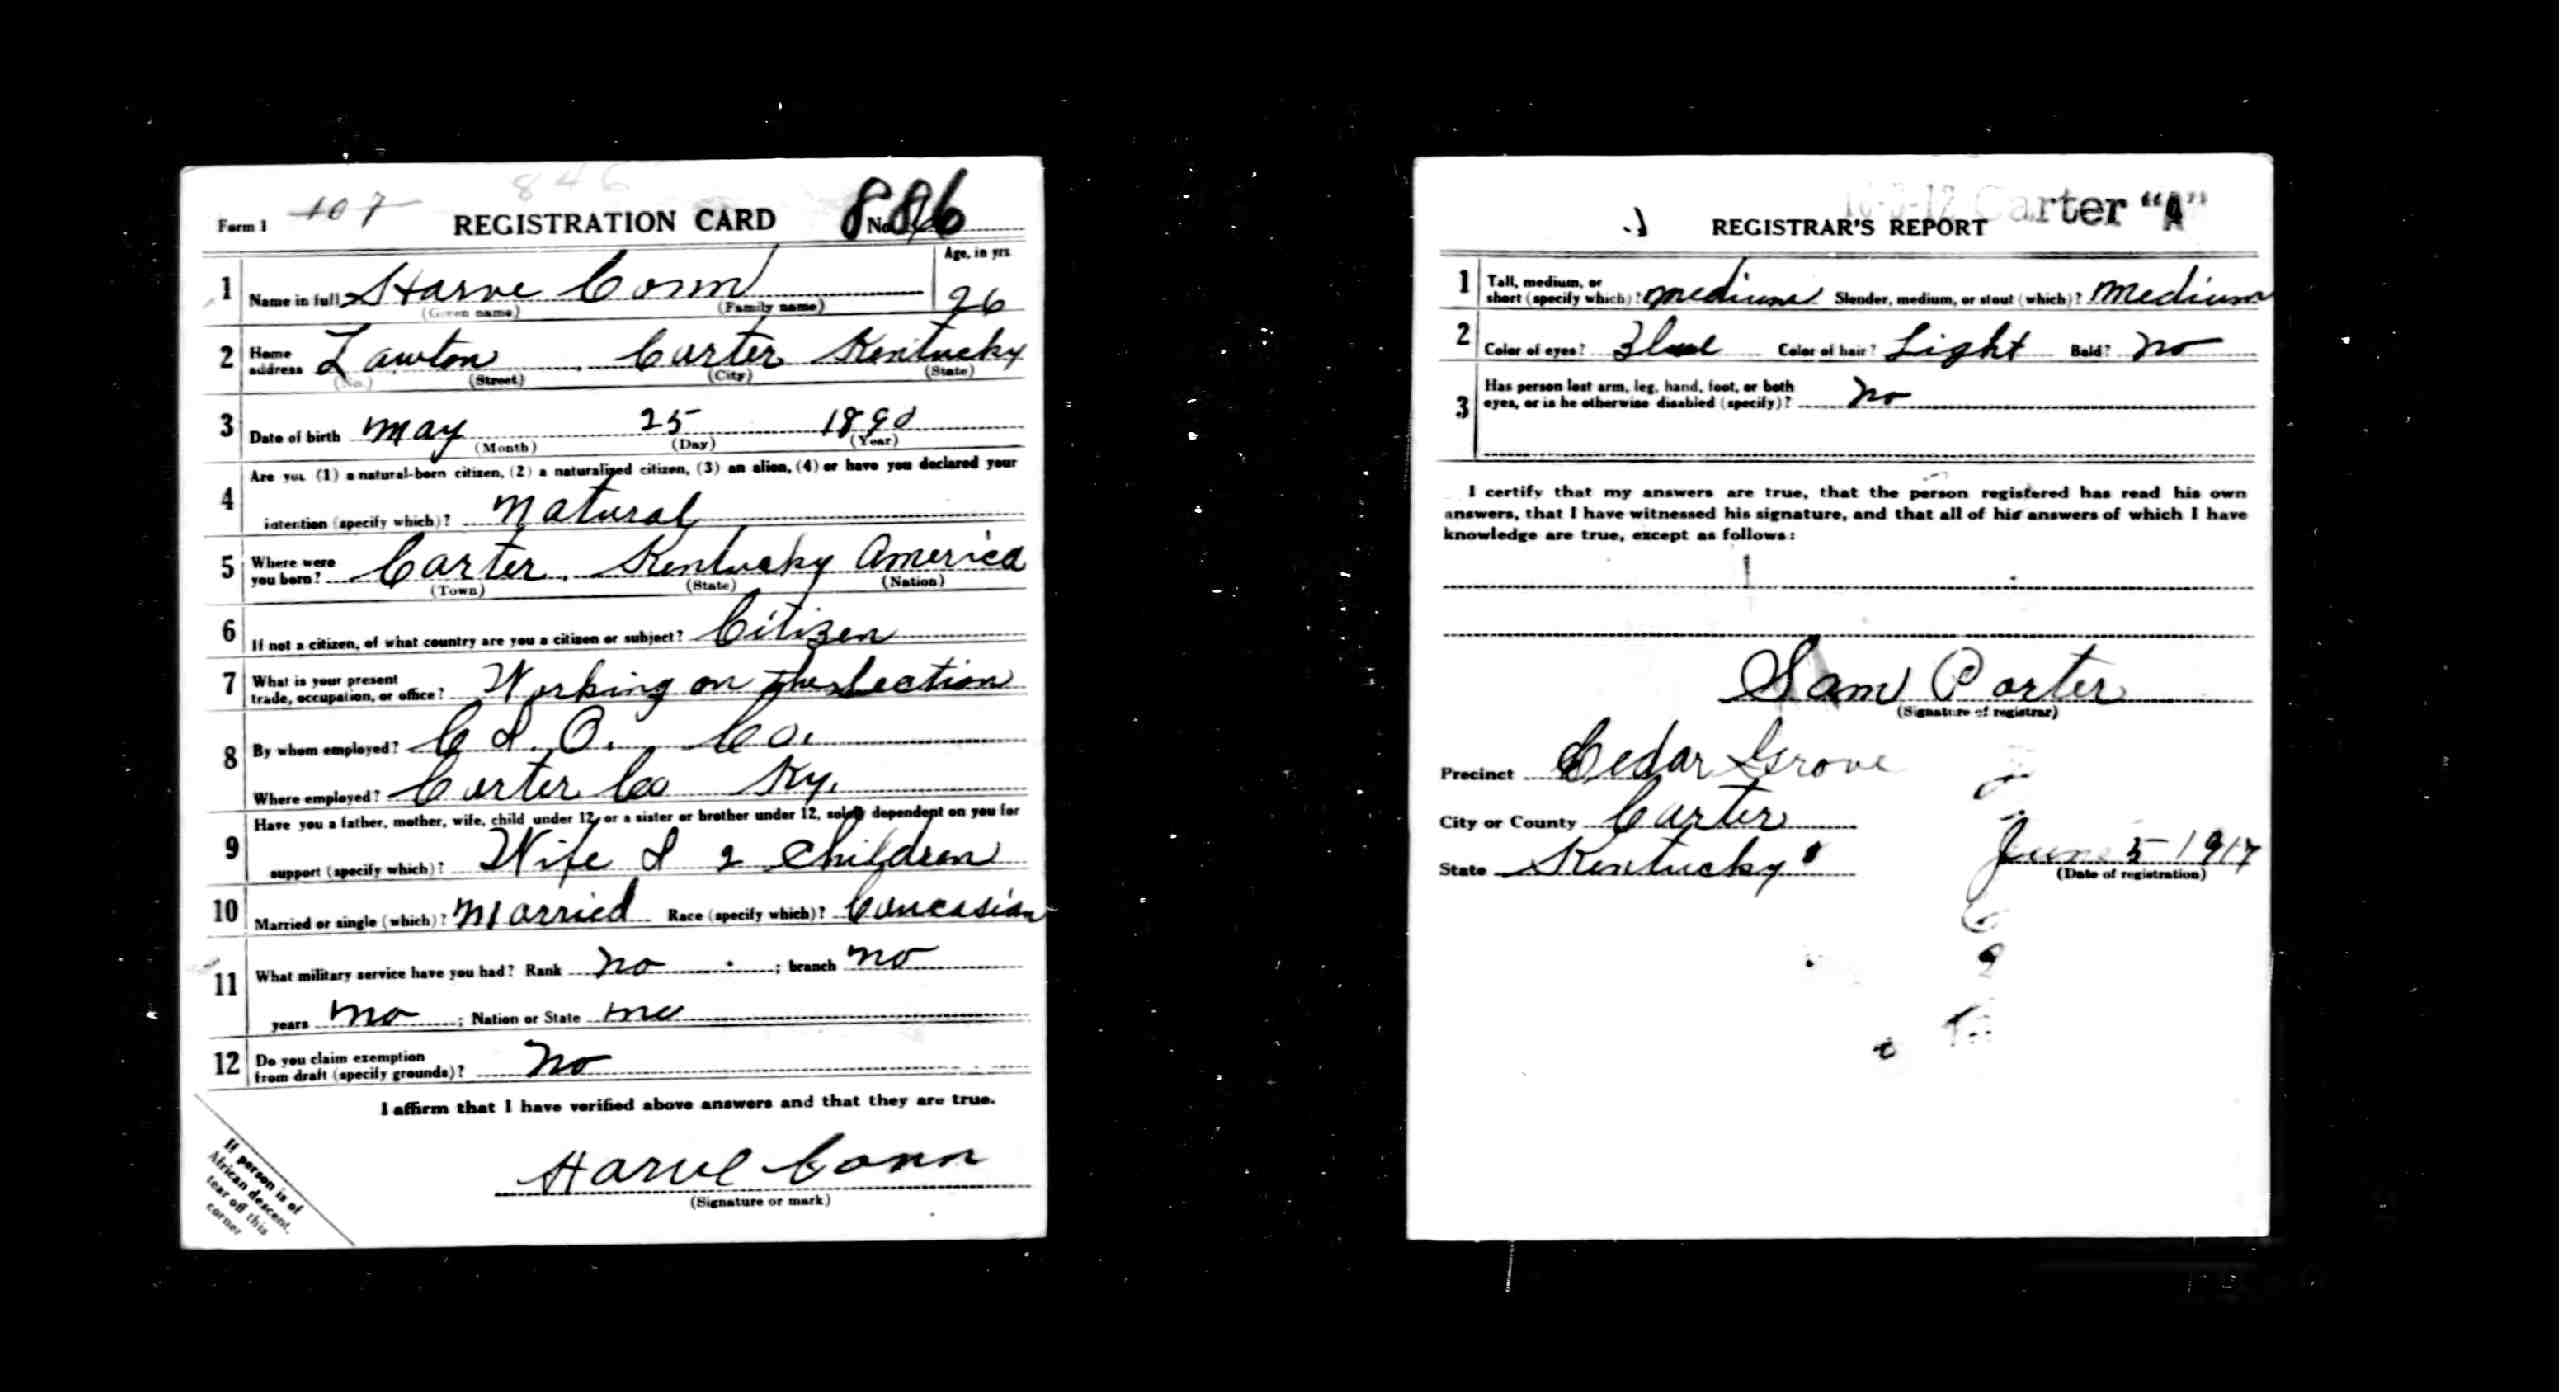 Form 1 107 846 REGISTRATION CARD No. 886
Age, in yrs
1 Name in full Harve Conn 26
(Given name) (Family name)
2 Home address Lawton Carter Kentucky
(No.) (Street) (City) (State)
3 Date of birth May 25 1890
(Month) (Day) (Year)
4 Are you (1) a natural-born citizen, (2) a naturalized citizen, (3) an alien, (4) or have you declared your
intention (specify which)? Natural
5 Where were you born? Carter Kentucky America
(Town) (State) (Nation)
6 If not a citizen, of what country are you a citizen or subject? Citizen
7 What is your present
trade, occupation, or office? Working on the Section
8 By whom employed? C & O. Co.
Where employed? Carter Co Ky.
9 Have you a father, mother, wife, child under 12, or a sister or brother under 12, solely dependent on you for
support (specify which)? Wife & 2 Children
10 Married or single (which)? Married Race (specify which)? Caucasian
11 What military service have you had? Rank no ; branch no
years no ; Nation or State no
12 Do you claim exemption
from draft (specify grounds)? No
I affirm that I have verified above answers and that they are true.
Harve Conn
(Signature or mark)
If person is of
African descent,
tear off this
corner
Carter "A"
REGISTRAR'S REPORT
1 Tall, medium, or
short (specify which)? medium Slender, medium, or stout (which)? Medium
2 Color of eyes? Blue Color of hair? Light Bald? No
3 Has person lost arm, leg, hand, foot, or both
eyes, or is he otherwise disabled (specify)? No
I certify that my answers are true, that the person registered has read his own
answers, that I have witnessed his signature, and that all of his answers of which I have
knowledge are true, except as follows:
Sam Porter
(Signature of registrar)
Precinct Cedar Grove
City or County Carter
State Kentucky June 5 1917
(Date of registration)